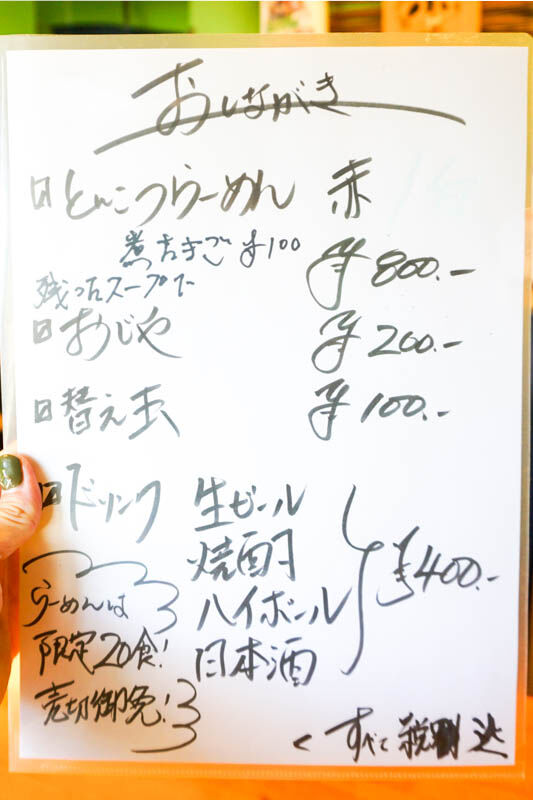 おしながき
とんこつらーめん 赤
煮たまご ¥100
¥800.-
残ったスープで
おじや ¥200.-
替え玉 ¥100.-
ドリンク 生ビール
焼酎
ハイボール
日本酒
¥400.-
らーめんは
限定20食!
売切御免!
すべて税込